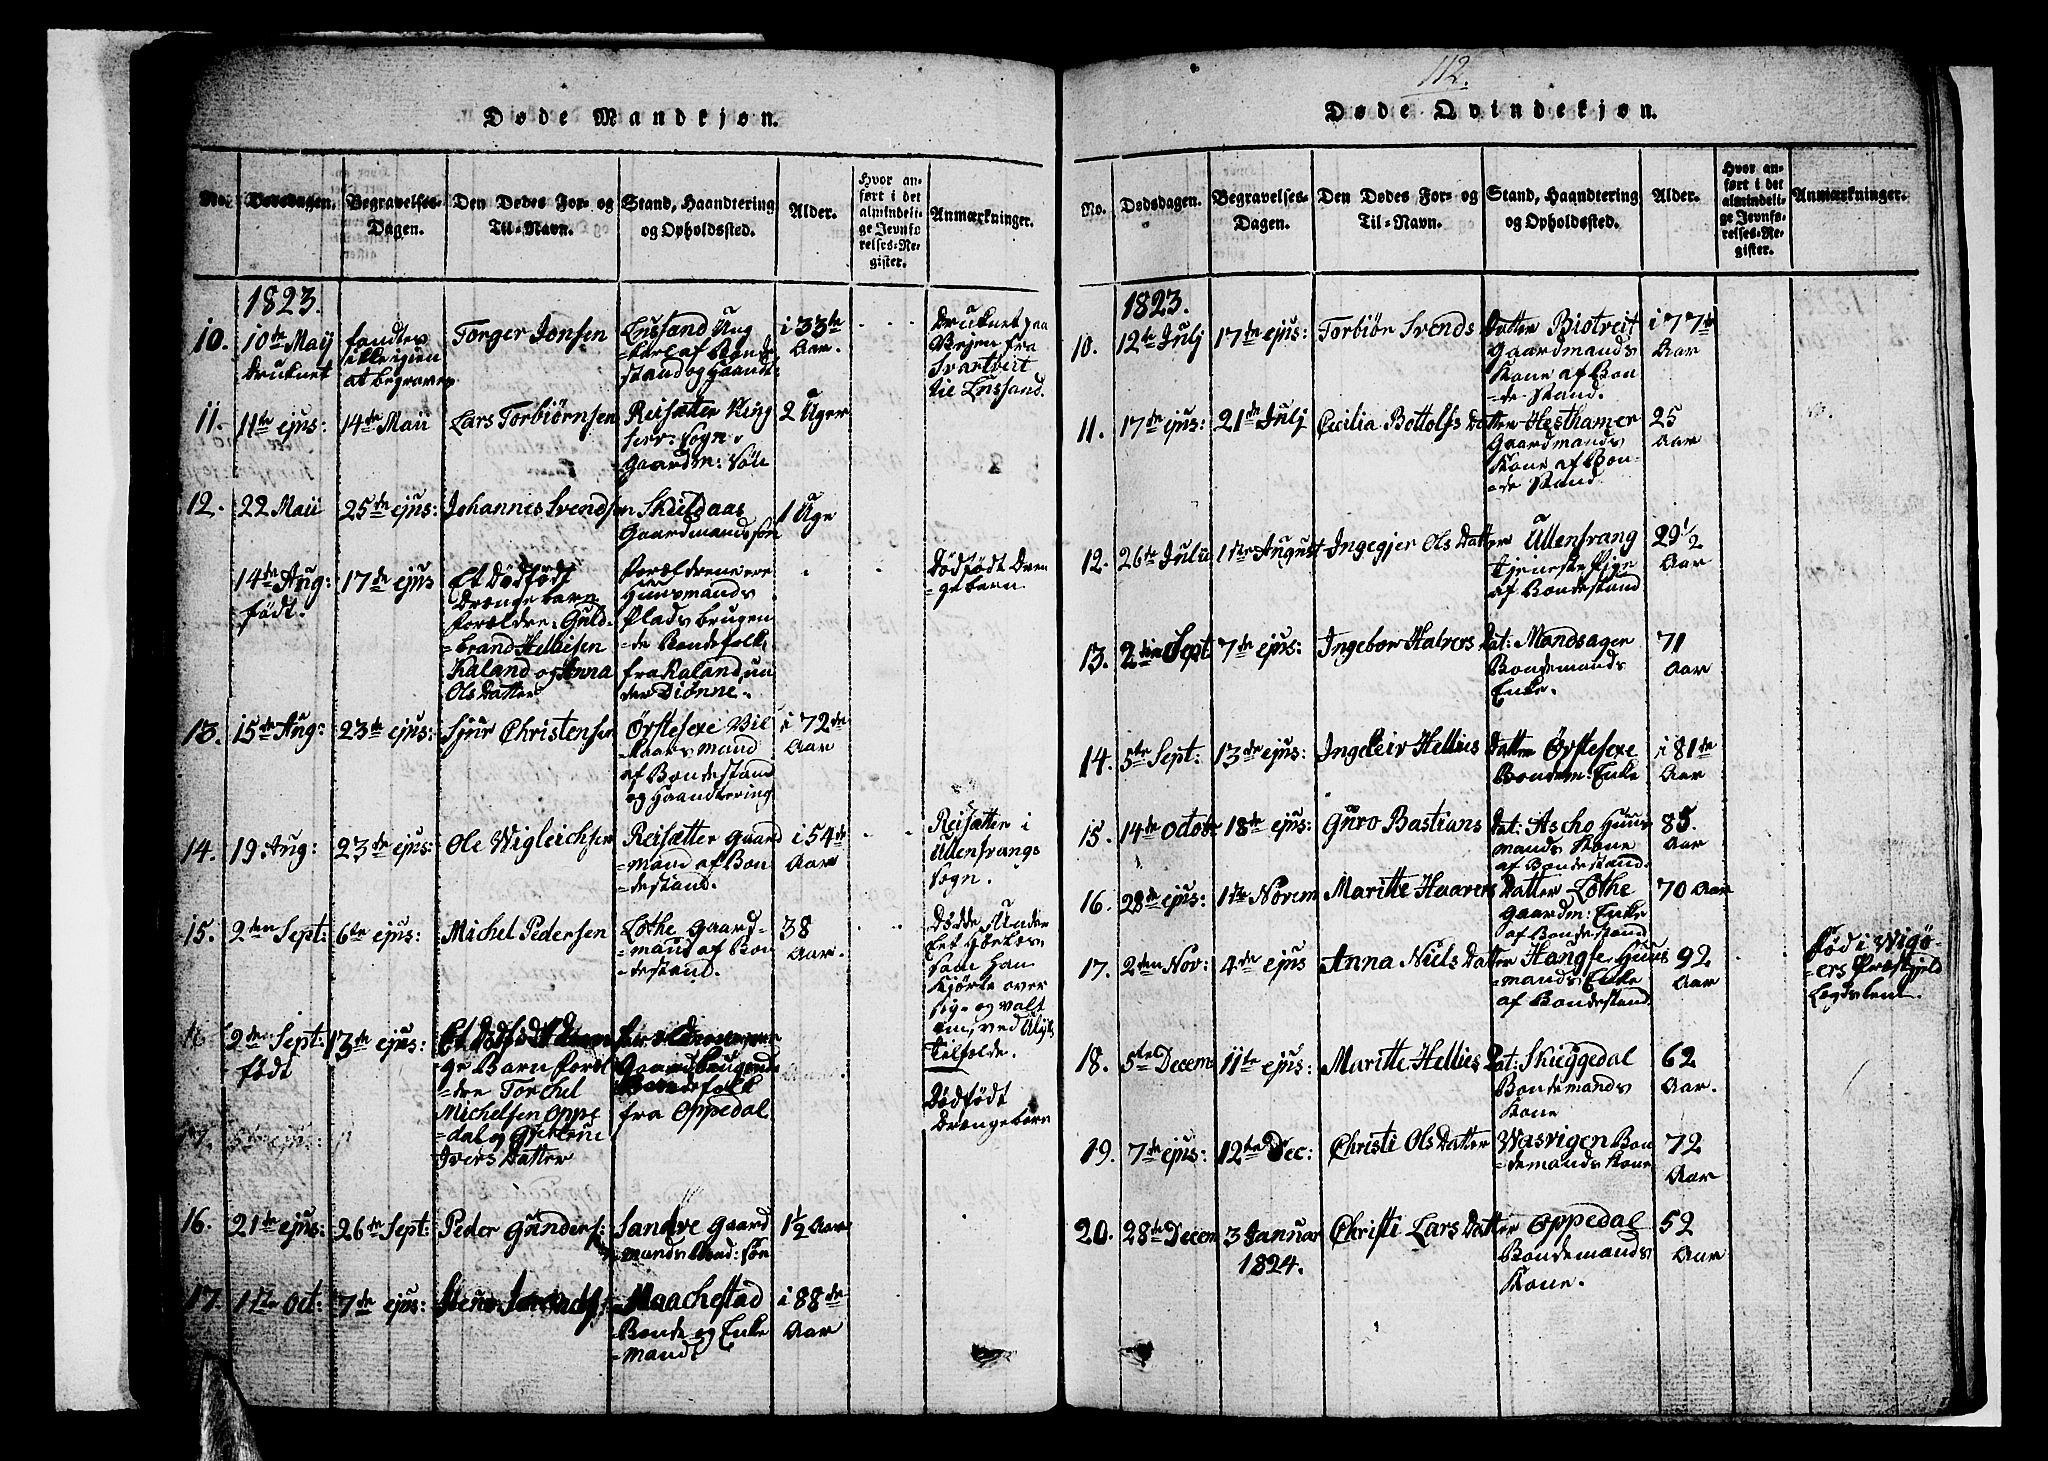 Døde Mandkjøn.
No. Dødsdagen. Begravelses-Dagen. Den Dødes For- og Til-Navn. Stand, Haandtering og Opholdssted. Alder. Hvor anført i det almindelige Jevnførelses-Register. Anmærkninger.
1823.
10. 10de Maij Druknet
fandtes ikke igien at begraves
Torger Jonsen
Eussand Ung
=karl af Bonde
stand og Haandt:
i 33te
Aar.
Druknet paa
Vejen fra
Svartveit
til Eussand.
11. 11te ejus: 14de Maii Lars Torbiørnsen
Reisæter King
serv: Sogn,
Gaardm: Søn
2 Uger
12. 22 Maii 25de ejus: Johannes Svendsen
Skieldaas
Gaardmands Søn
1 Uge
14de Aug:
født.
17de ejus
Et Dødfødt
Drenge barn
Forældre: Guld-
=brand Helliesen
Kaland og Anna
Ols Datter
Forældrene ere
Huusmands
Plads brugen
=de Bondefolk,
fra Kaland, un
der Diønne.
Dødfødt Dren
=gebarn
13. 15de Aug: 23de ejus: Sjur Christensen
Ørstesexe Vil
kaarsmand
af Bondestand
og Haandtering
i 72de
Aar
14. 19 Aug: 23de ejus: Ole Wigleichsen
Reisætter Gaard
=mand af Bon
=destand.
i 54de
Aar
Reisætter i
Ullensvangs
Sogn.
15. 2den Sept: 6te ejus: Michel Pedersen
Lothe Gaard-
=mand af Bon
=destand.
38
Aar.
Døde Under
Et
som han
Kjørte over
sig og valt
om, ved
Tilfælde.
2de Sept:
født
13de ejus:
Et Dødfødt Dren
ge Barn Foræl
=dre Torchel
Michelsen Oppe
=dal og
Ivers Datter
Forældrene ere
Gaardbrugende
Bondefolk
fra Oppedal.
Dødfødt
Drengebarn
16. 21de ejus: 26de Sept: Peder Gunders:
Sandve Gaard
mands Søn
1½ Aar
17. 1ste Oct: 7de ejus:
Maachestad
Bonde og Enke
=mand
i 88de
Aar
112.
Døde Qvindekjøn.
No. Dødsdagen. Begravelses-Dagen. Den Dødes For- og Til-Navn. Stand, Haandtering og Opholdssted. Alder. Hvor anført i det almindelige Jevnførelses-Register. Anmærkninger.
1823.
10. 12te Julj 17de ejus: Torbiør Svends Datter Biotveit
Gaardmands
Kone af Bon
=de Stand.
i 77de
Aar
11. 17de ejus: 21de Julj Cecilia Bottolfs Datter Hesthamer
Gaardmands
Kone af Bon-
=de Stand
25
Aar
12. 26te Julii 1ste August Ingegjer Ols Datter Ullensvang
Tjeneste Pige
af Bondestand
29 1/2
Aar
13. 2den Sept: 7de ejus: Ingebor Halvers Dat: Mandsager
Bondemands
Enke.
71
Aar
14. 5te Sept: 13de ejus: Ingeleir Hellies Datter Ørstesexe
Bondem: Enke
i 81de
Aar
15. 14de October 18de ejus: Guro Bastians Dat: Ascho Huus
mands Kone
af Bondestand.
83.
Aar
16. 28de ejus: 1ste Novem Maritte Haavers Datter Lothe
Gaardm: Enke
af Bondestand
70 Aar
17. 2den Nov: 4de ejus Anna Niels Datter Hangse Huus
=mands Enke
af Bondestand
92
Aar
Fød i Wigø-
=ers Præstgjeld
Legdslem.
18. 5te Decem 11te ejus: Maritte Hellies Dat: Skieggedal
Bondemands
Kone
62
Aar.
19. 7de ejus: 12te Dec: Christi Ols Datter Wasvigen Bon
=demands Kone
72
Aar
20. 28de Decem 3 Januar
1824.
Christi Lars Datter Oppedal
Bondemands
Kone.
52
Aar